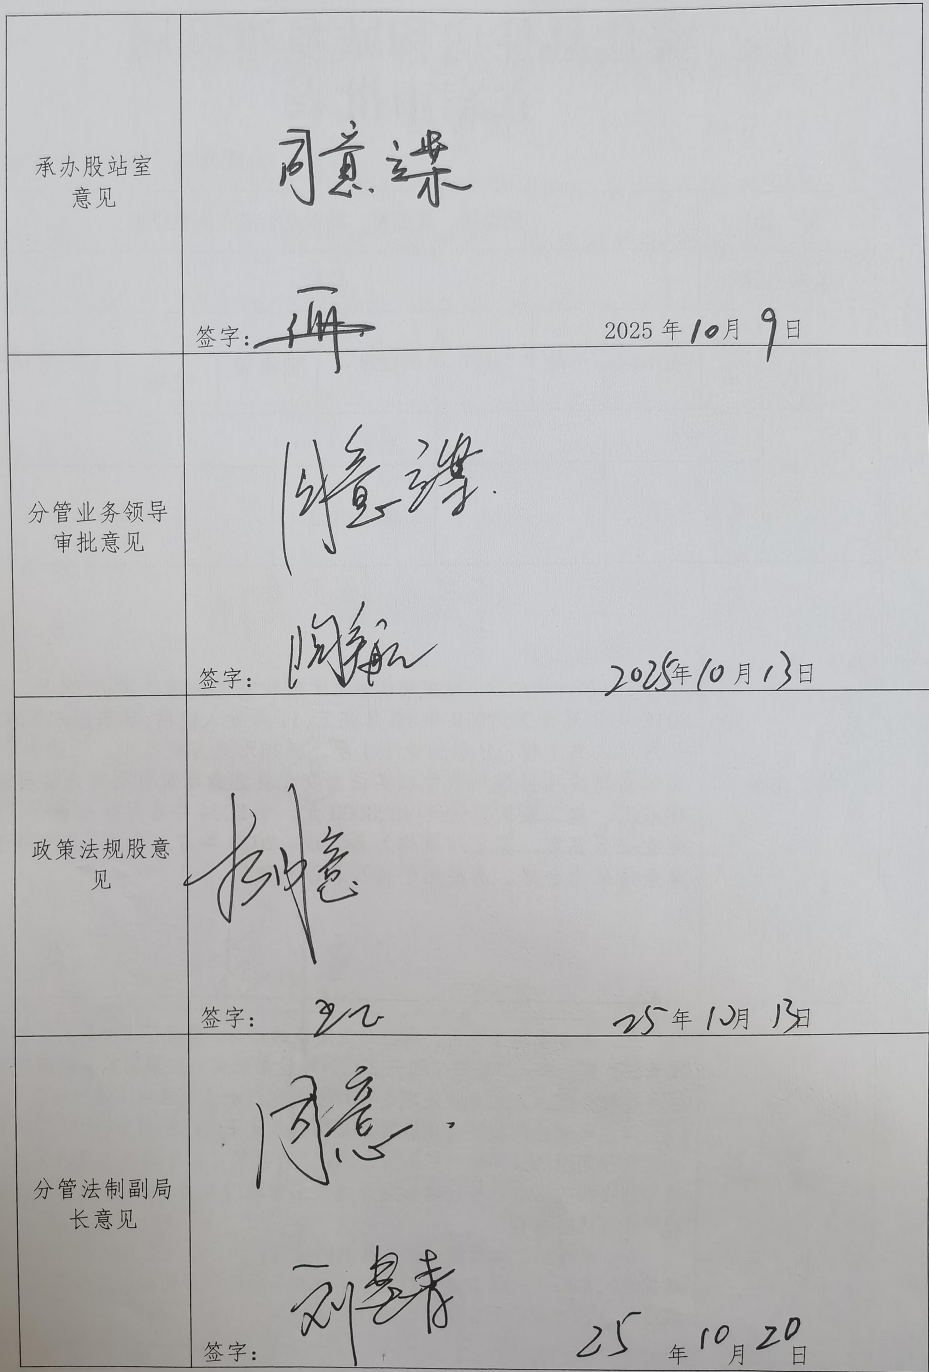 承办股站室
意见
同意立案
签字：
2025年10月9日
分管业务领导
审批意见
同意立案.
签字：
2025年10月13日
政策法规股意
见
同意
签字：
25年10月13日
分管法制副局
长意见
同意.
签字：刘青
25年10月20日